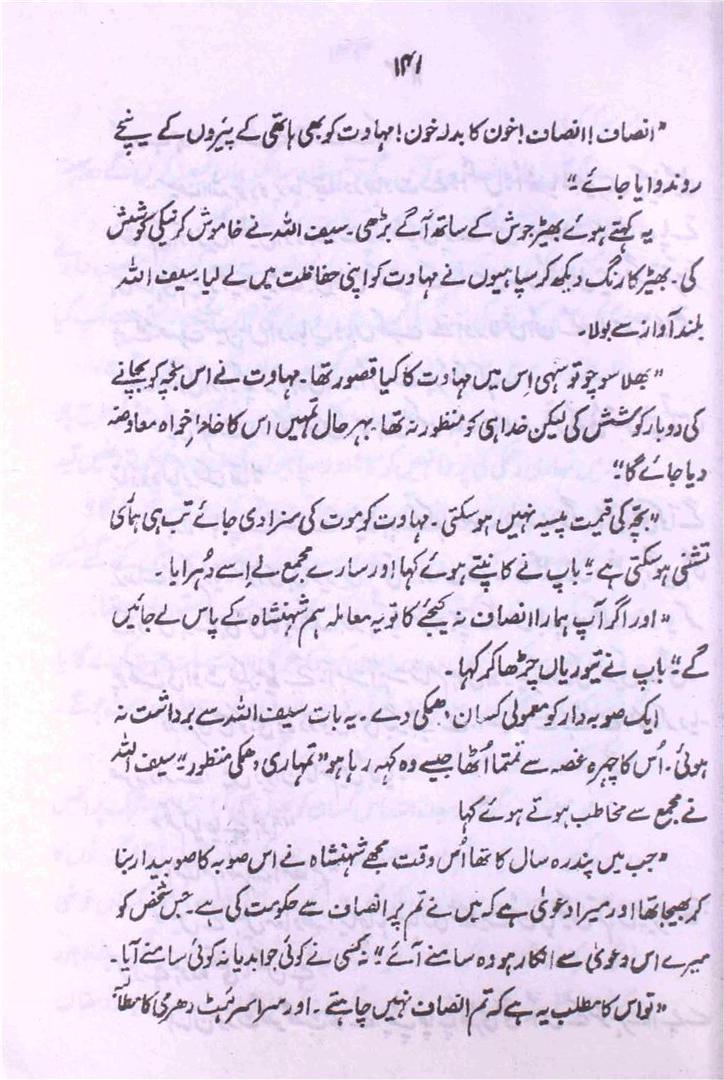 ۱۴۱
"انصاف! انصاف! خون کا بدلہ خون! مہاوت کو بھی ہاتھی کے پیروں کے نیچے
روندوایا جائے"
یہ کہتے ہوئے بھیڑ جوش کے ساتھ آگے بڑھی۔ سیف اللہ نے خاموش کرنیکی کوشش
کی۔ بھیڑ کا رنگ دیکھ کر سپاہیوں نے مہاوت کو اپنی حفاظت میں لے لیا۔ سیف اللہ
بلند آواز سے بولا۔
"بھلا سوچو تو سہی اِس میں مہاوت کا کیا قصور تھا۔ مہاوت نے اس بچہ کو بچانے
کی دوبار کوشش کی لیکن خدا ہی کو منظور نہ تھا۔ بہرحال تمہیں اس کا خاطر خواہ معاوضہ
دیا جائے گا"
"بچہ کی قیمت پیسہ نہیں ہو سکتی۔ مہاوت کو موت کی سزا دی جائے تب ہی ہماری
تشفی ہو سکتی ہے" باپ نے کانپتے ہوئے کہا اور سارے مجمع نے اِسے دُہرایا
"اور اگر آپ ہمارا انصاف نہ کیجئے گا تو یہ معاملہ ہم شہنشاہ کے پاس لے جائیں
گے" باپ نے تیوریاں چڑھا کر کہا۔
ایک صوبہ دار کو معمولی کسان دھمکی دے۔ یہ بات سیف اللہ سے برداشت نہ
ہوئی۔ اُس کا چہرہ غصہ سے تمتما اُٹھا جیسے وہ کہہ رہا ہو "تمہاری دھمکی منظور" سیف اللہ
نے مجمع سے مخاطب ہوتے ہوئے کہا
"جب میں پندرہ سال کا تھا اُس وقت مجھے شہنشاہ نے اس صوبہ کا صوبیدار بنا
کر بھیجا تھا اور میرا دعویٰ ہے کہ میں نے تم پر انصاف سے حکومت کی ہے۔ جس شخص کو
میرے اس دعویٰ سے انکار ہو وہ سامنے آئے" نہ کسی نے کوئی جواب دیا نہ کوئی سامنے آیا۔
"تو اس کا مطلب یہ ہے کہ تم انصاف نہیں چاہتے۔ اور سراسر ہٹ دھرمی کا